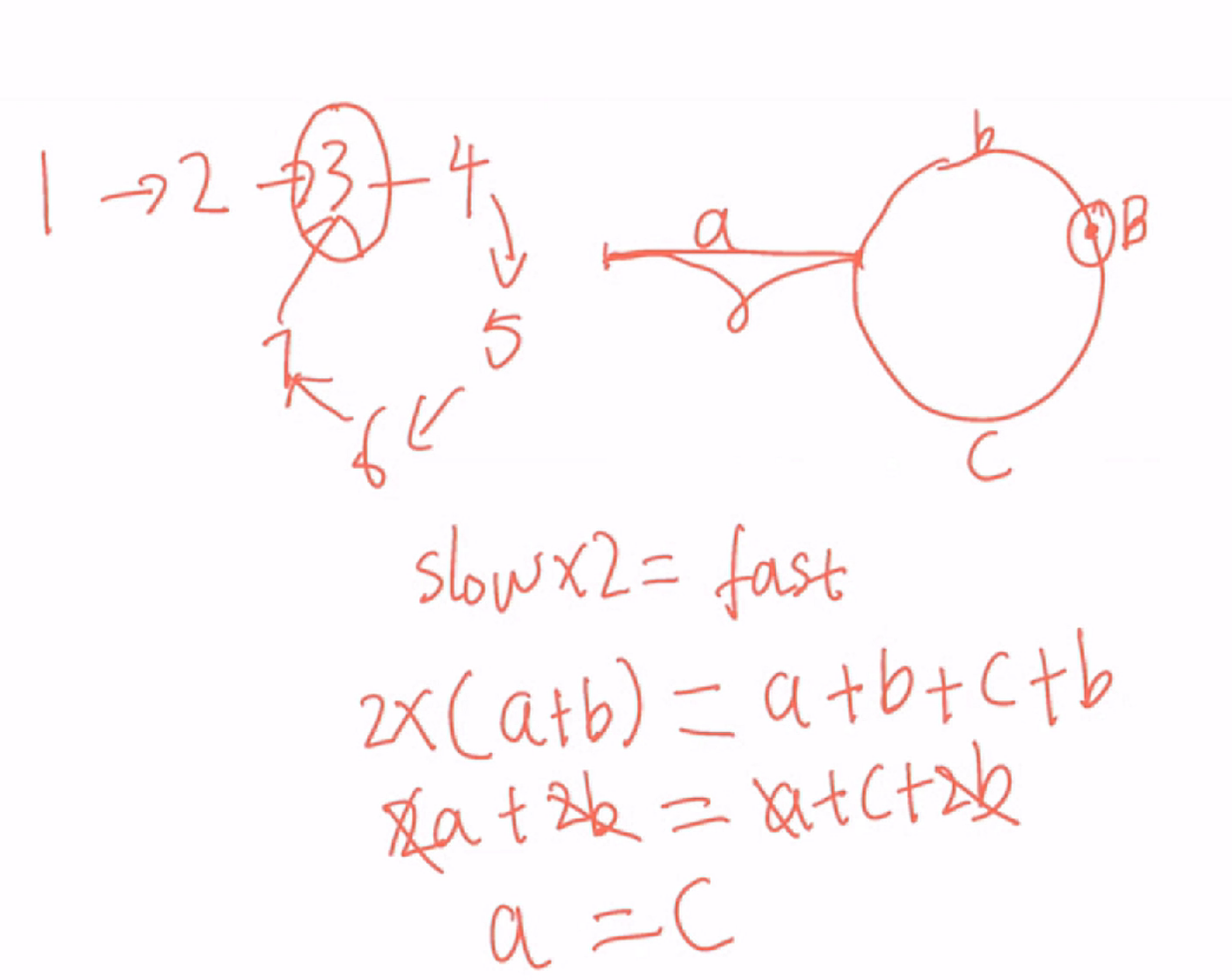 1 → 2 → 3 - 4
5
6
7
a
b
B
C
slow x 2 = fast
2x(a+b) = a+b+c+b
2a + 2b = a+c+2b
a = C